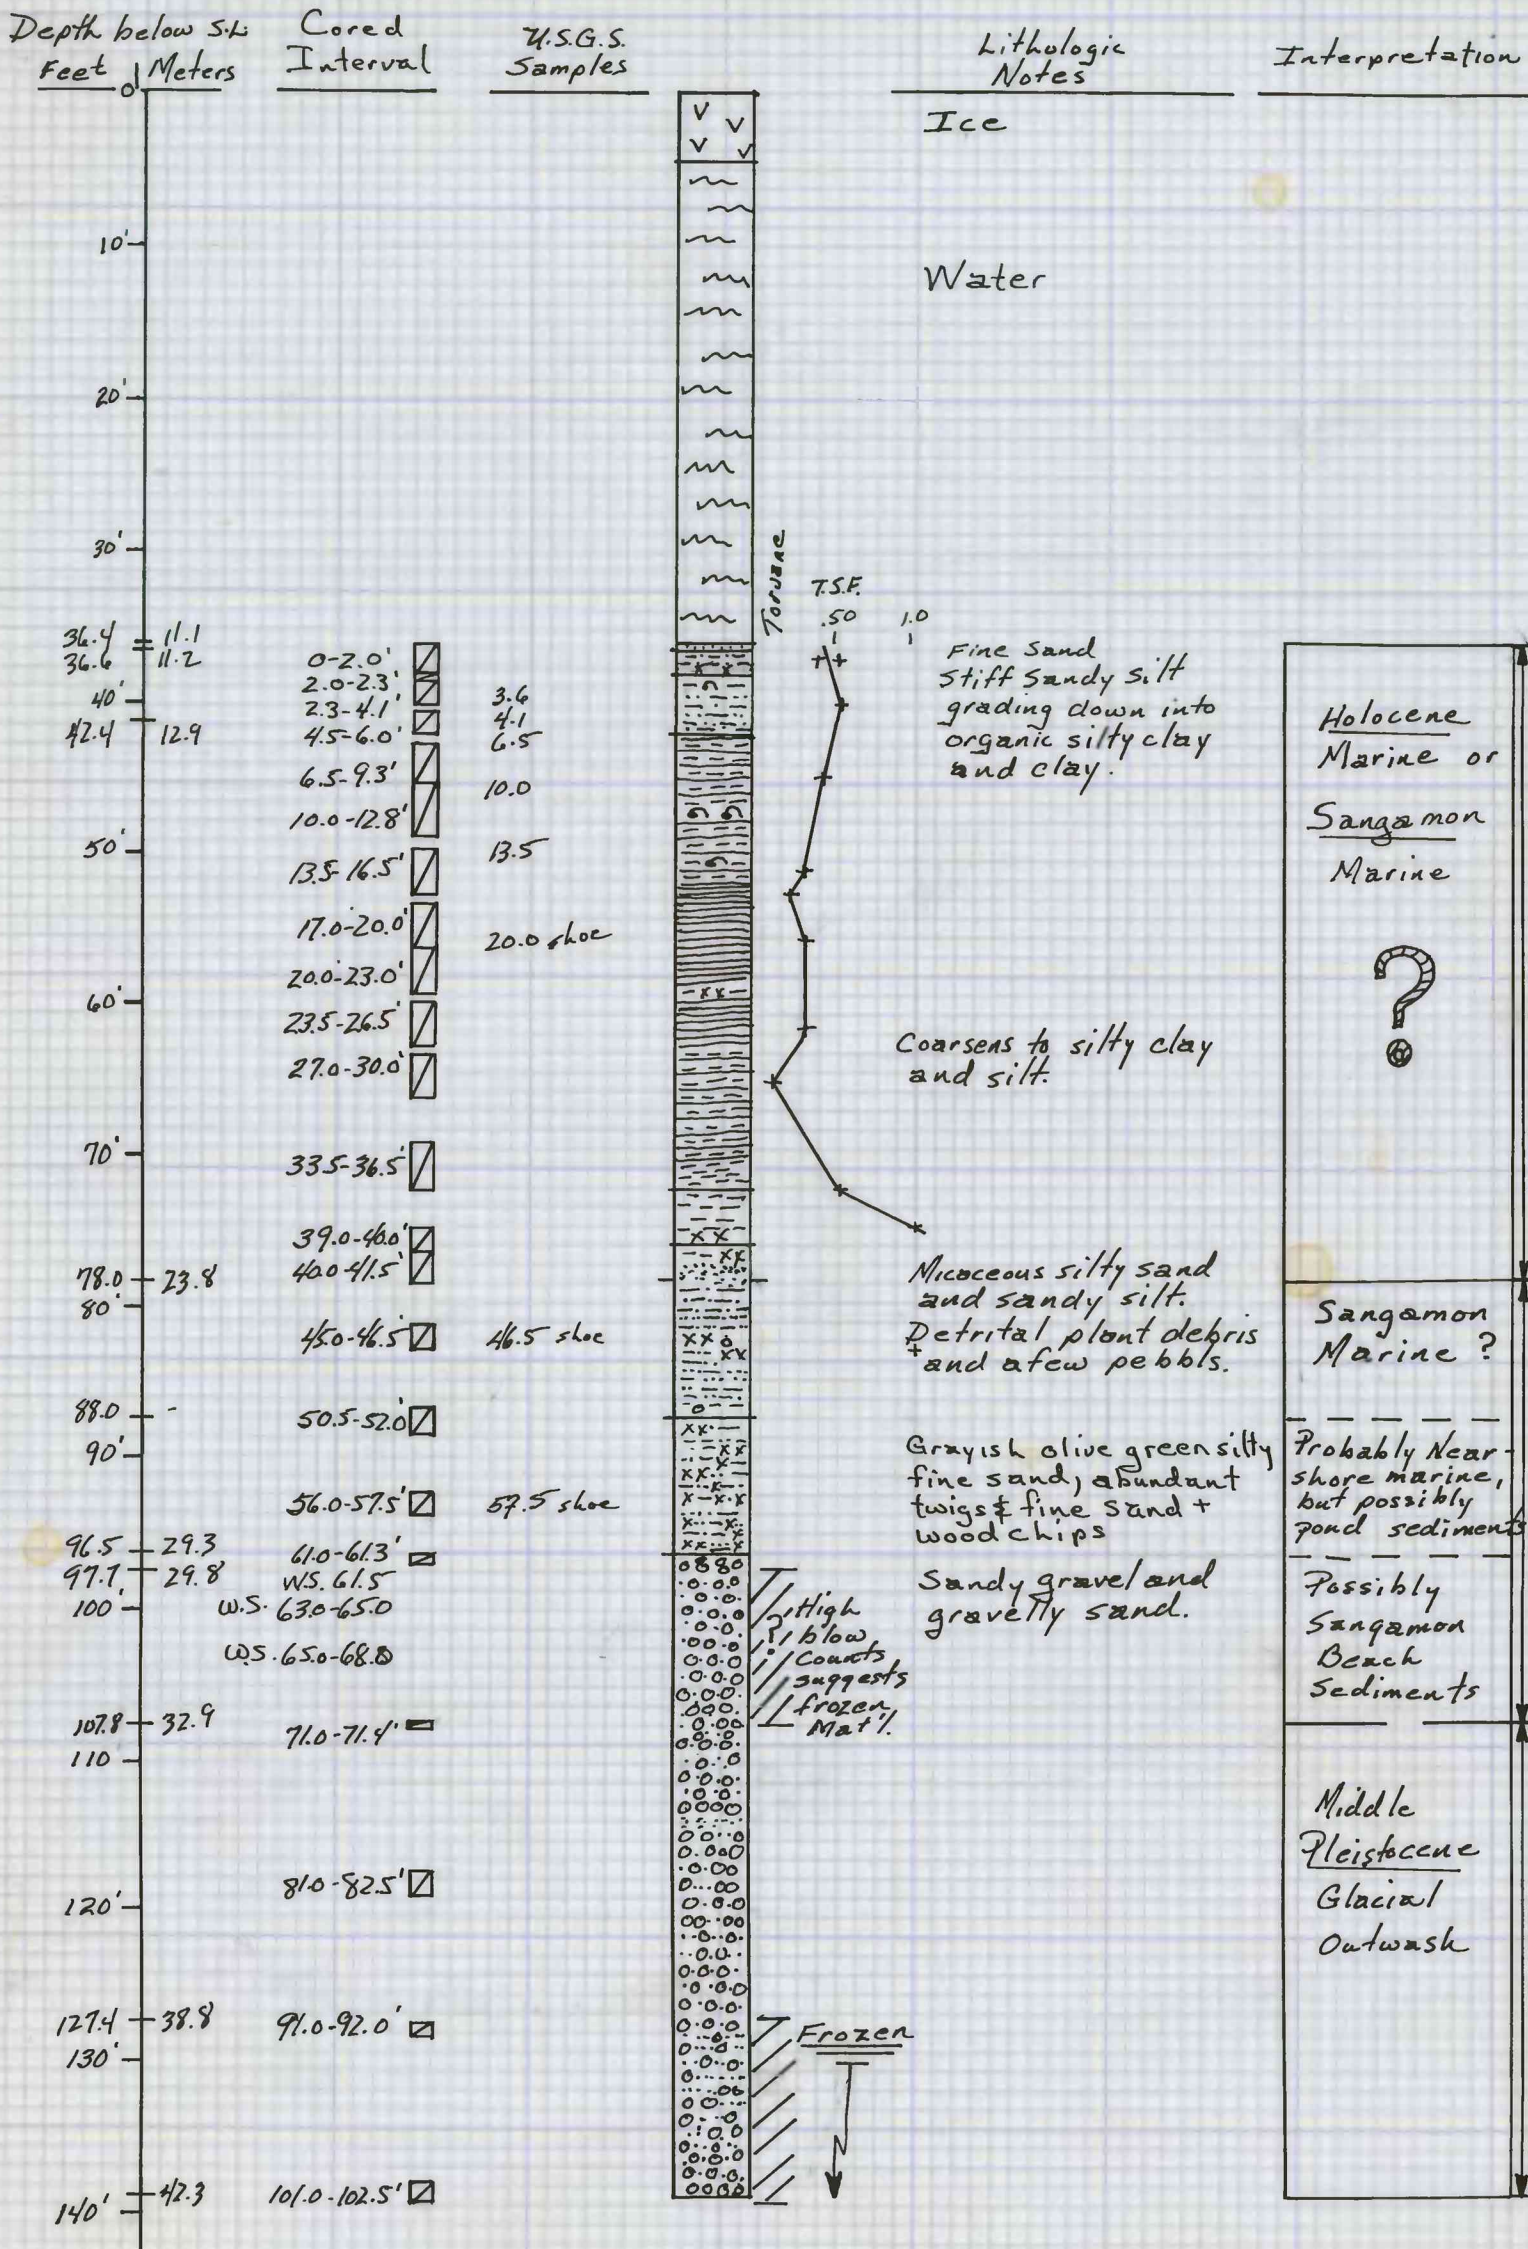 Depth below S.L.
Feet Meters
Cored
Interval
U.S.G.S.
Samples
Lithologic
Notes
Interpretation
0
10'
20'
30'
36.4 11.1
36.6 11.2
40'
42.4 12.9
50'
60'
70'
78.0 23.8
80'
88.0 -
90'
96.5 29.3
97.7 29.8
100'
107.8 32.9
110
120'
127.4 38.8
130'
42.3
140'
0-2.0'
2.0-2.3'
2.3-4.1'
4.5-6.0'
6.5-9.3'
10.0-12.8'
13.5-16.5'
17.0-20.0'
20.0-23.0'
23.5-26.5'
27.0-30.0'
33.5-36.5'
39.0-40.0'
40.0-41.5'
45.0-46.5'
50.5-52.0'
56.0-57.5'
61.0-61.3'
W.S. 61.5
W.S. 63.0-65.0
W.S. 65.0-68.0
71.0-71.4'
81.0-82.5'
91.0-92.0'
101.0-102.5'
3.6
4.1
6.5
10.0
13.5
20.0 shoe
46.5 shoe
57.5 shoe
Torvane
T.S.F.
.50 1.0
?
High
blow
Counts
suggests
frozen
Mat'l.
Frozen
Ice
Water
Fine Sand
Stiff Sandy Silt
grading down into
organic silty clay
and clay.
Coarsens to silty clay
and silt.
Micaceous silty sand
and sandy silt.
Detrital plant debris
+ and a few pebbls.
Grayish olive green silty
fine sand, abundant
twigs & fine Sand +
wood chips
Sandy gravel and
gravelly sand.
Holocene
Marine or
Sangamon
Marine
?
Sangamon
Marine ?
Probably Near-
shore marine,
but possibly
pond sediments
Possibly
Sangamon
Beach
Sediments
Middle
Pleistocene
Glacial
Outwash